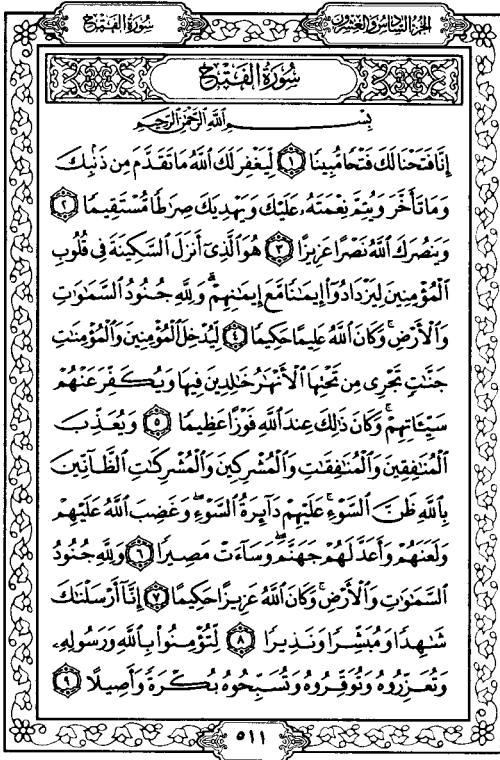 الجزء السادس والعشرون
سورة الفتح
سُورَةُ الْفَتْحِ
بِسْمِ اللَّهِ الرَّحْمَٰنِ الرَّحِيمِ
إِنَّا فَتَحْنَا لَكَ فَتْحًا مُّبِينًا ١ لِّيَغْفِرَ لَكَ اللَّهُ مَا تَقَدَّمَ مِن ذَنۢبِكَ
وَمَا تَأَخَّرَ وَيُتِمَّ نِعْمَتَهُۥ عَلَيْكَ وَيَهْدِيَكَ صِرَٰطًا مُّسْتَقِيمًا ٢
وَيَنصُرَكَ اللَّهُ نَصْرًا عَزِيزًا ٣ هُوَ الَّذِىٓ أَنزَلَ السَّكِينَةَ فِى قُلُوبِ
الْمُؤْمِنِينَ لِيَزْدَادُوٓا۟ إِيمَٰنًا مَّعَ إِيمَٰنِهِمْ ۗ وَلِلَّهِ جُنُودُ السَّمَٰوَٰتِ
وَالْأَرْضِ ۚ وَكَانَ اللَّهُ عَلِيمًا حَكِيمًا ٤ لِّيُدْخِلَ الْمُؤْمِنِينَ وَالْمُؤْمِنَٰتِ
جَنَّٰتٍ تَجْرِى مِن تَحْتِهَا الْأَنْهَٰرُ خَٰلِدِينَ فِيهَا وَيُكَفِّرَ عَنْهُمْ
سَيِّـَٔاتِهِمْ ۚ وَكَانَ ذَٰلِكَ عِندَ اللَّهِ فَوْزًا عَظِيمًا ٥ وَيُعَذِّبَ
الْمُنَٰفِقِينَ وَالْمُنَٰفِقَٰتِ وَالْمُشْرِكِينَ وَالْمُشْرِكَٰتِ الظَّآنِّينَ
بِاللَّهِ ظَنَّ السَّوْءِ ۚ عَلَيْهِمْ دَآئِرَةُ السَّوْءِ ۖ وَغَضِبَ اللَّهُ عَلَيْهِمْ
وَلَعَنَهُمْ وَأَعَدَّ لَهُمْ جَهَنَّمَ ۖ وَسَآءَتْ مَصِيرًا ٦ وَلِلَّهِ جُنُودُ
السَّمَٰوَٰتِ وَالْأَرْضِ ۚ وَكَانَ اللَّهُ عَزِيزًا حَكِيمًا ٧ إِنَّآ أَرْسَلْنَٰكَ
شَٰهِدًا وَمُبَشِّرًا وَنَذِيرًا ٨ لِّتُؤْمِنُوا۟ بِاللَّهِ وَرَسُولِهِۦ
وَتُعَزِّرُوهُ وَتُوَقِّرُوهُ وَتُسَبِّحُوهُ بُكْرَةً وَأَصِيلًا ٩
٥١١